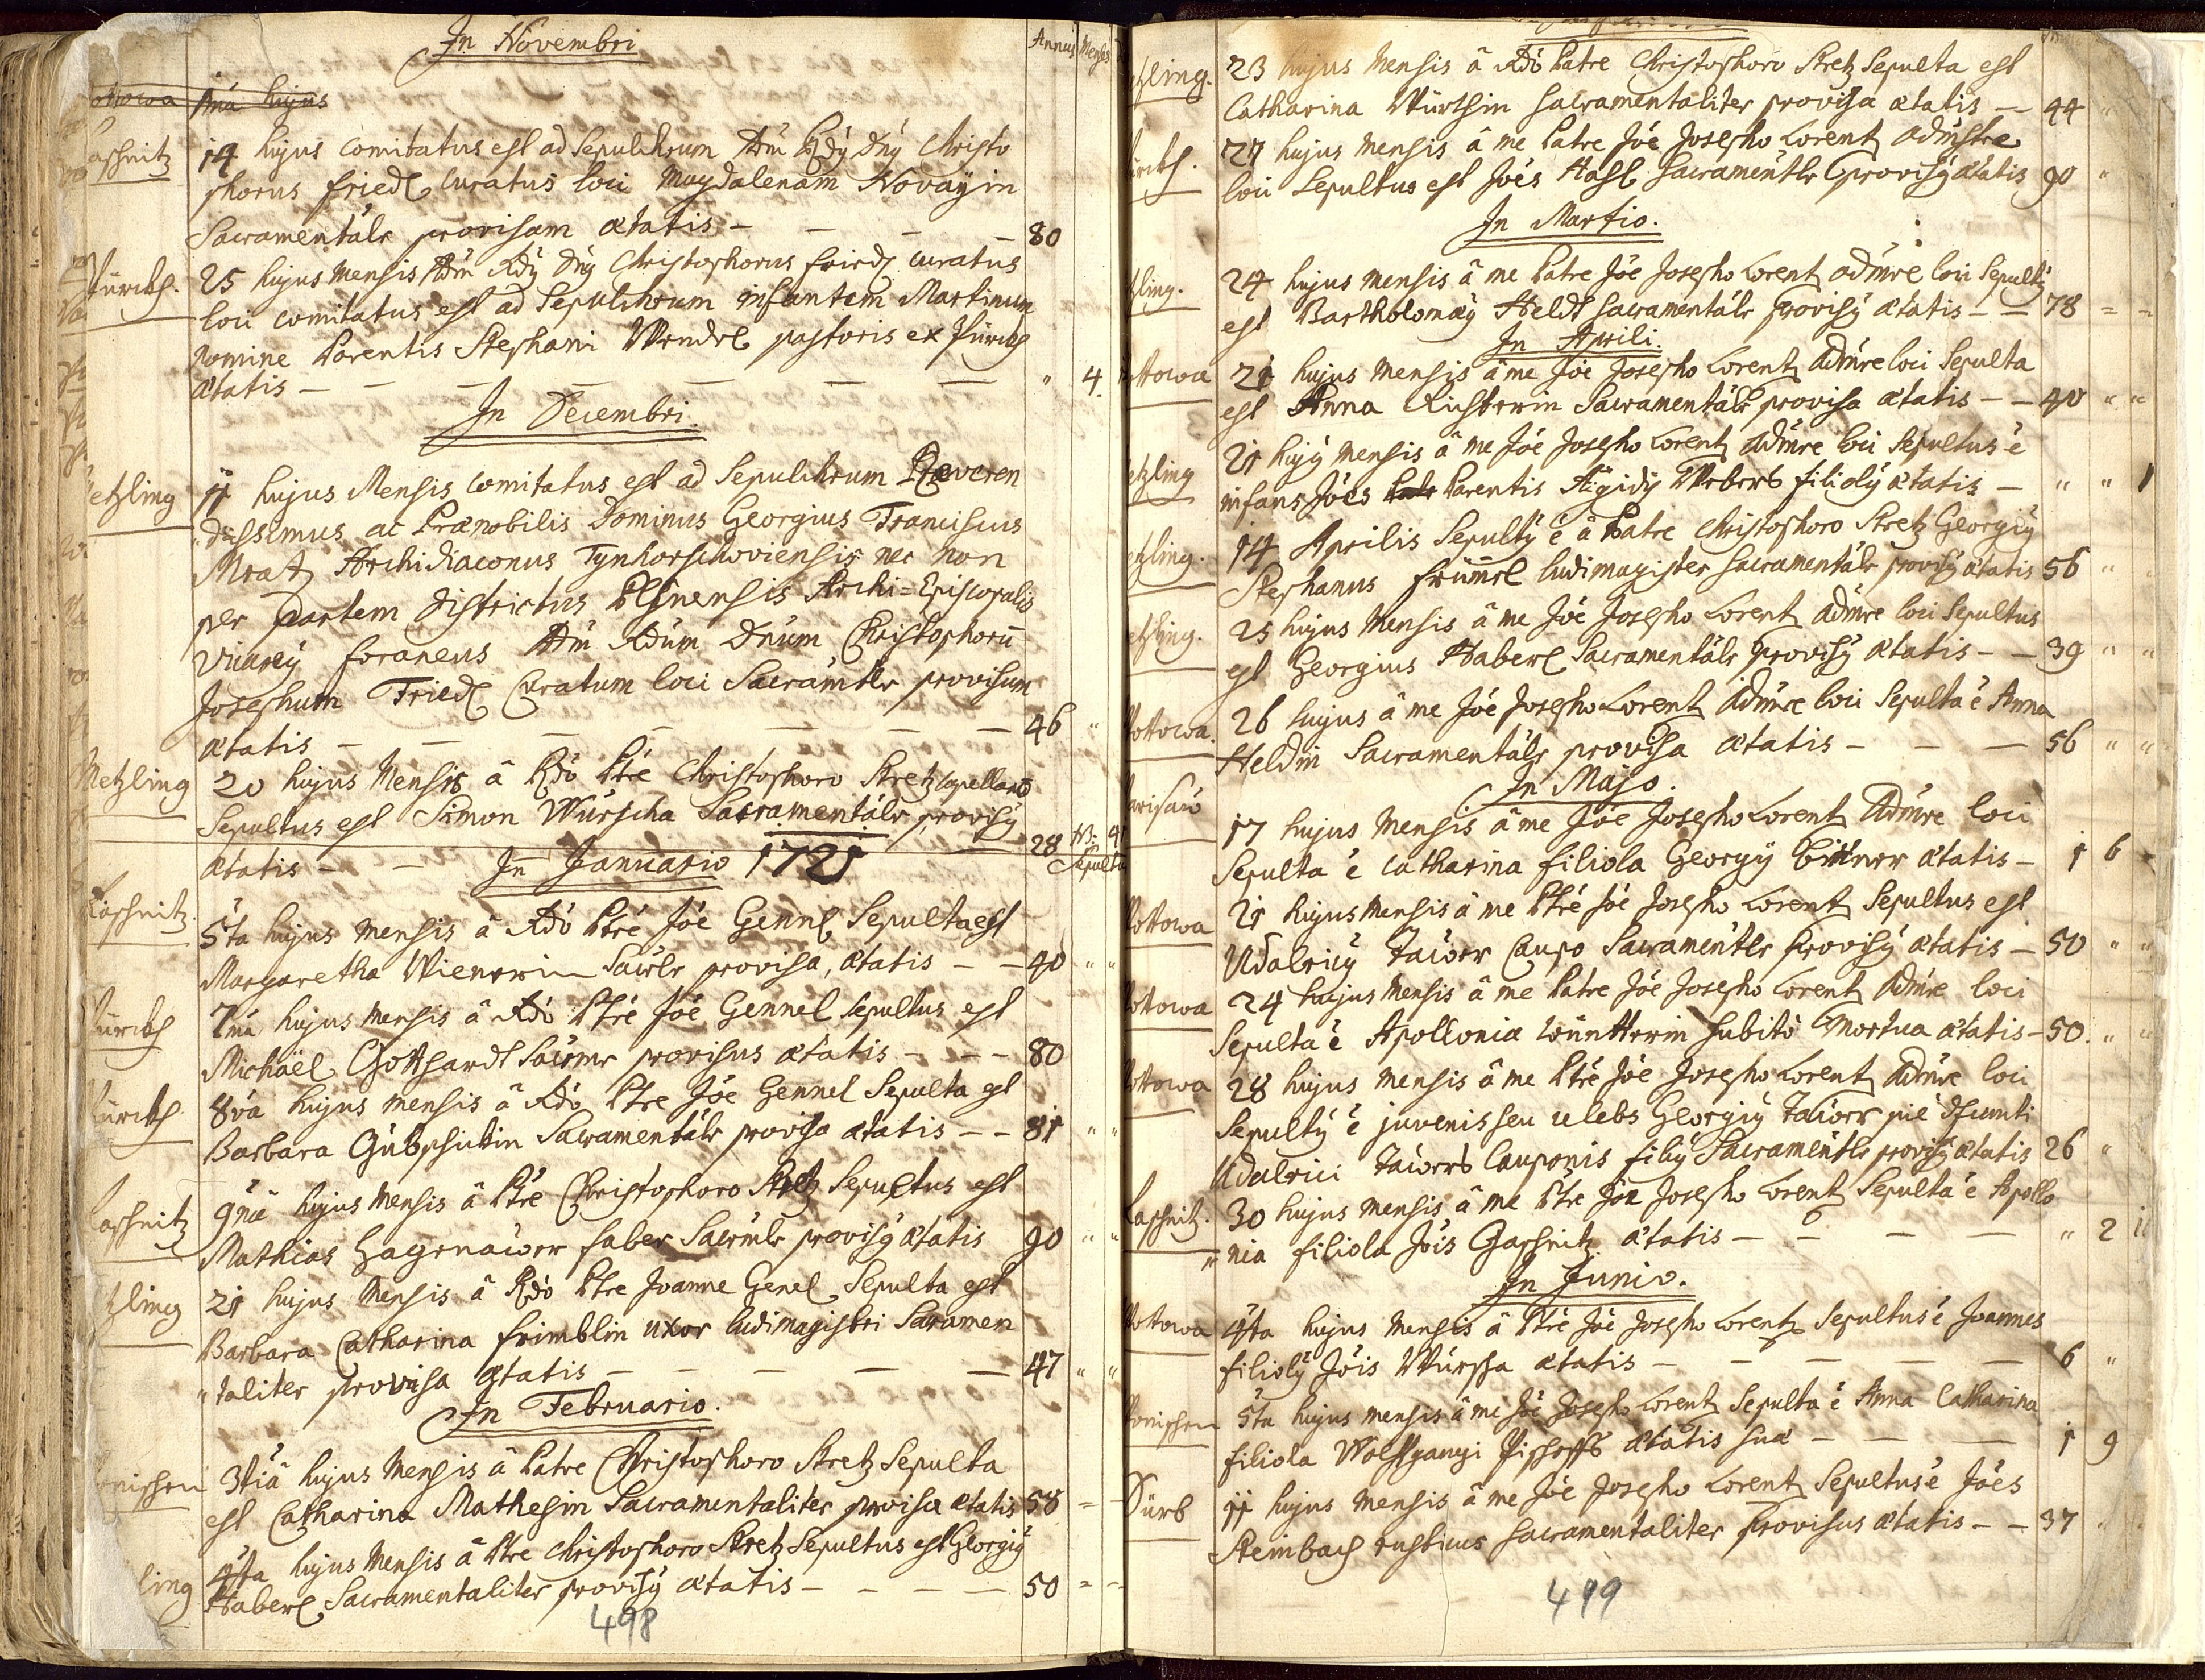 In Novembri
Annus Menses
ottowa 1ma hujus
aschnitz 14 hujus comitatus est ad Sepulchrum Adm Rdy Dny Christo
phorus Friedl curatus loci Magdalenam Novaÿin
Sacramentälr provisam ætatis – – – – 80
Pürckh. 25 hujus Mensis Adm Rdy Dny Christophorus Friedl curatus
loci comitatus est ad Sepulchrum infantem Martinum
nomine Parentis Stephani Wendel pastoris ex Pürckh
ætatis – – – – – – – " 4.
In Decembri.
etzling 11 hujus Mensis comitatus est ad Sepulchrum Reveren
"dissimus ac Prænobilis Dominus Georgius Franciscus
Mratz Archidiaconus Tynhorschoviensis nec non
per partem districtus Plsnensis Archi=Episcopalis
Vicarÿ foraneus Adm Rdum Dnum Christophorū
Josephum Friedl Curatum loci Sacramtlr provisum
ætatis – – – – – – – 46 "
Metzling 20 hujus Mensis â Rdo Ptre Christophoro Stretz capellano
Sepultus est Simon Würscha Sacramentälr provisÿ
ætatis – – 28
In Januario 1721
Sepulta
Laschnitz. 5ta hujus mensis â Rdo Ptre Jöe Gennel Sepulta est
Margaretha Wienerin Sacrlr provisa, ætatis – – 40 " "
Pürckh 7ma hujus mensis â Rdo Ptre Jöe Gennel sepultus est
Michaël Gotthardt Sacrmr provisus ætatis – – – 80
Pürckh 8va hujus mensis â Rdo Ptre Jöe Gennel Sepulta est
Barbara Gübschickin Sacramentälr provisa ætatis – – 81 " "
aschnitz 9na hujus mensis â Ptre Christophoro Stretz Sepultus est
Mathias Hagenawer faber Sacrmlr provisÿ ætatis 90 " "
tzling 21 hujus Mensis â Rdo Ptre Joanne Genel Sepulta est
Barbara Catharina Frimblin uxor ludimagistri Sacramen
"taliter provisa ætatis – – – – 47 " "
In Februario.
onischen 3tia hujus Mensis â Patre Christophoro Stretz Sepulta
est Catharina Mathesin Sacramentaliter provisa ætatis 58 = –
ling 4ta hujus Mensis â Ptre Christophoro Stretz Sepultus est Georgiÿ
Haberl Sacramentaliter provisÿ ætatis – – – – 50 = –
498
tzling. 23 hujus Mensis â Rdo Patre Christophoro Stretz Sepulta est
Catharina Würthin sacramentaliter provisa ætatis – 44 "
ürckh. 27 hujus mensis â me Patre Jöe Josepho Lorentz admstre
loci Sepultus est Jöes Hasl Sacramentlr provisÿ ætatis 90 "
In Martio.
tzling. 24 hujus mensis â me Patre Jöe Josepho Lorentz admre loci Sepultÿ
est Bartholomæÿ Heldt sacramentälr provisÿ ætatis – – 78 = =
In Aprili.
ottowa 21 hujus mensis â me Jöe Josepho Lorentz admre loci Sepulta
est Anna Richterin Sacramentälr provisa ætatis – – 40 " "
etzling 21 hujÿ mensis â me Jöe Josepho Lorentz admre loci Sepultus ē
infans Jöes Parentis Ægidÿ Webers filiolÿ ætatis – " " 1
etzling. 14 Aprilis Sepultÿ ē â Patre Christophoro Stretz Georgiÿ
Stephanus Frümel ludimagister sacramentälr provisÿ ætatis 56 " "
etzling. 25 hujus Mensis â me Jöe Josepho Lorentz admre loci Sepultus
est Georgius Haberl Sacramentälr provisÿ ætatis – – 39 " "
ottowa. 26 hujus â me Jöe Josepho Lorentz admre loci Sepulta ē Anna
Heldin Sacramentälr provisa ætatis – – – 56 " "
In Majo.
17 hujus Mensis â me Jöe Josepho Lorentz admre loci
Sepulta ē Catharina filiola Georgÿ Bittner ætatis – 1 6
ottowa 21 hujus mensis â me Ptre Jöe Josepho Lorentz Sepultus est
Udalricÿ Tawer Caupo Sacramentlr provisÿ ætatis – 50 " "
ottowa 24 hujus mensis â me Patre Jöe Josepho Lorentz admre loci
Sepulta ē Apollonia subito mortua ætatis – 50. " "
ottowa 28 hujus mensis â me Ptre Jöe Josepho Lorentz admre loci
Sepultÿ ē juvenis seu cælebs Georgiÿ Tawer pie dfuncti
Udalrici Tawers Cauponis filiÿ Sacramentlr provisÿ ætatis 26 "
Laschnitz. 30 hujus mensis â me Ptre Jöe Josepho Lorentz Sepulta ē Apollo
"nia filiola Jöis Gaschnitz ætatis – – – – " 2
In Junio.
ottowa 4ta hujus mensis â Ptre Jöe Josepho Lorentz Sepultus ē Joannes
filiolÿ Jöis Würscha ætatis – – – – – 6 "
onischen 5ta hujus mensis â me Jöe Josepho Lorentz Sepulta ē Anna Catharina
filiola Wolfgangi Pischoffs ætatis suæ – – – 1 9
Pürk 11 hujus mensis â me Jöe Josepho Lorentz Sepultus ē Jöes
Steinbach rusticus sacramentaliter provisus ætatis – – 37 "
499